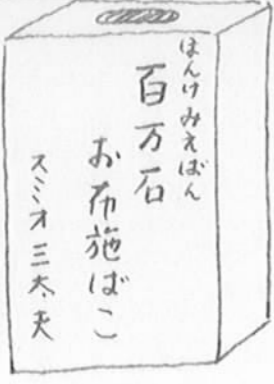 ほんけみえばん
百万石
お布施ばこ
スミオ三太夫